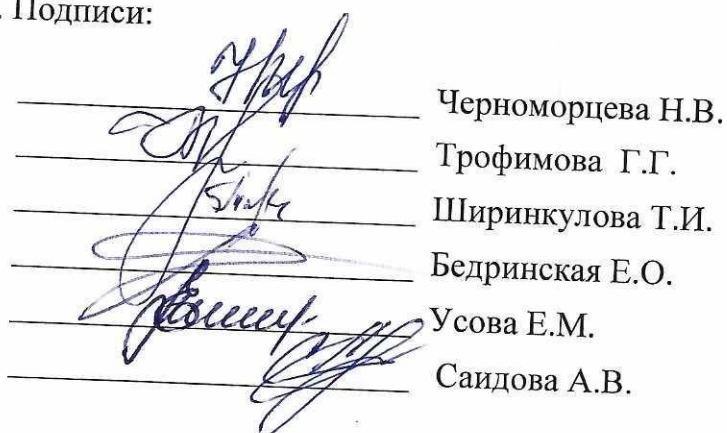 . Подписи:
Черноморцева Н.В.
Трофимова Г.Г.
Ширинкулова Т.И.
Бедринская Е.О.
Усова Е.М.
Саидова А.В.